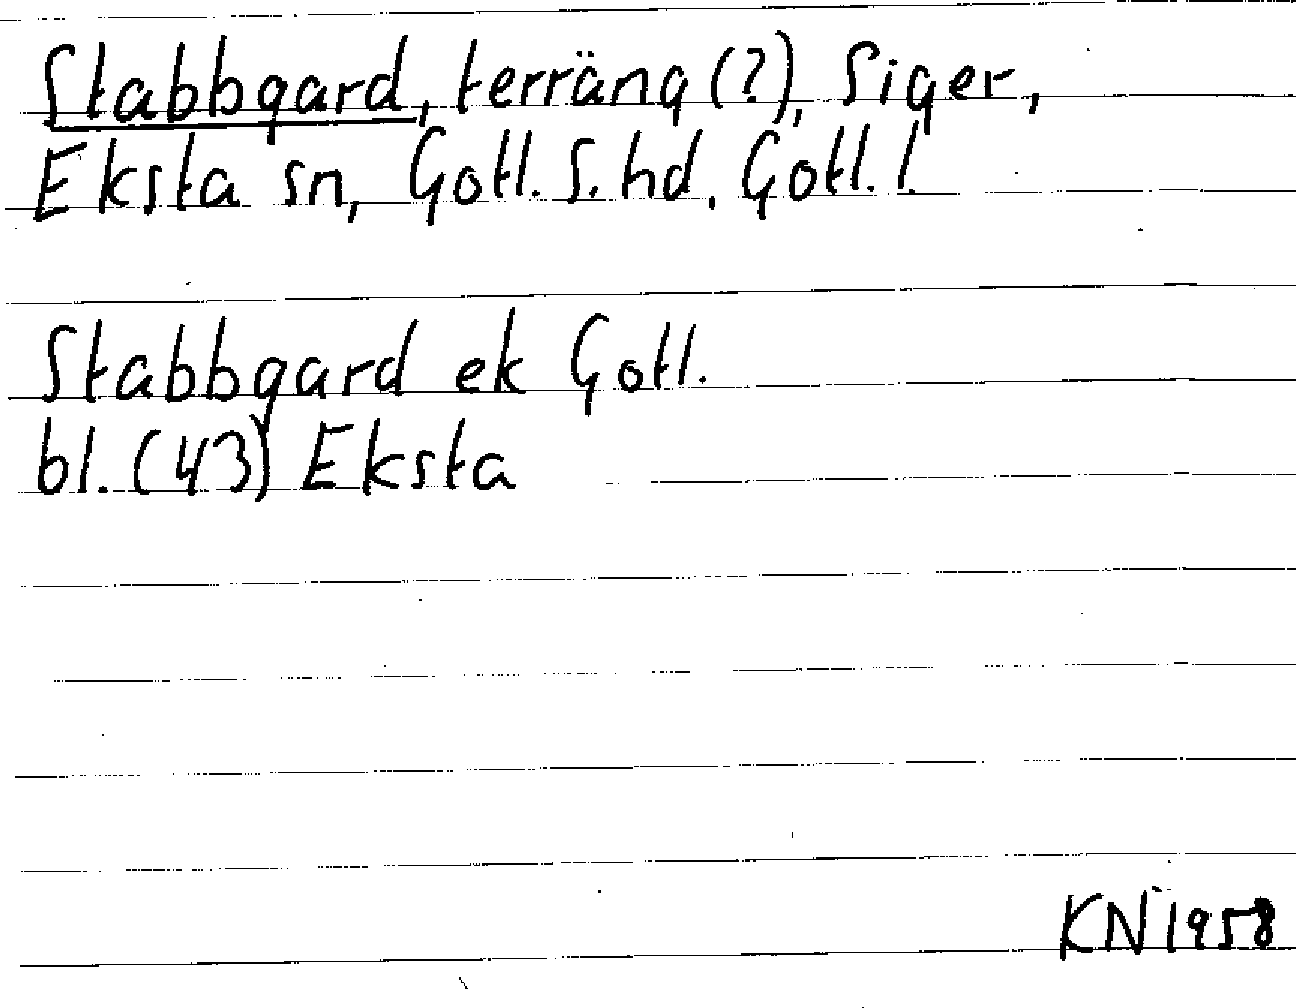 Stabbgard, terräng (?), Siger,
Eksta sn, Gotl. S. hd. Gotl. l.
Stabbgard ek Gotl.
bl. (43) Eksta
KN 1958